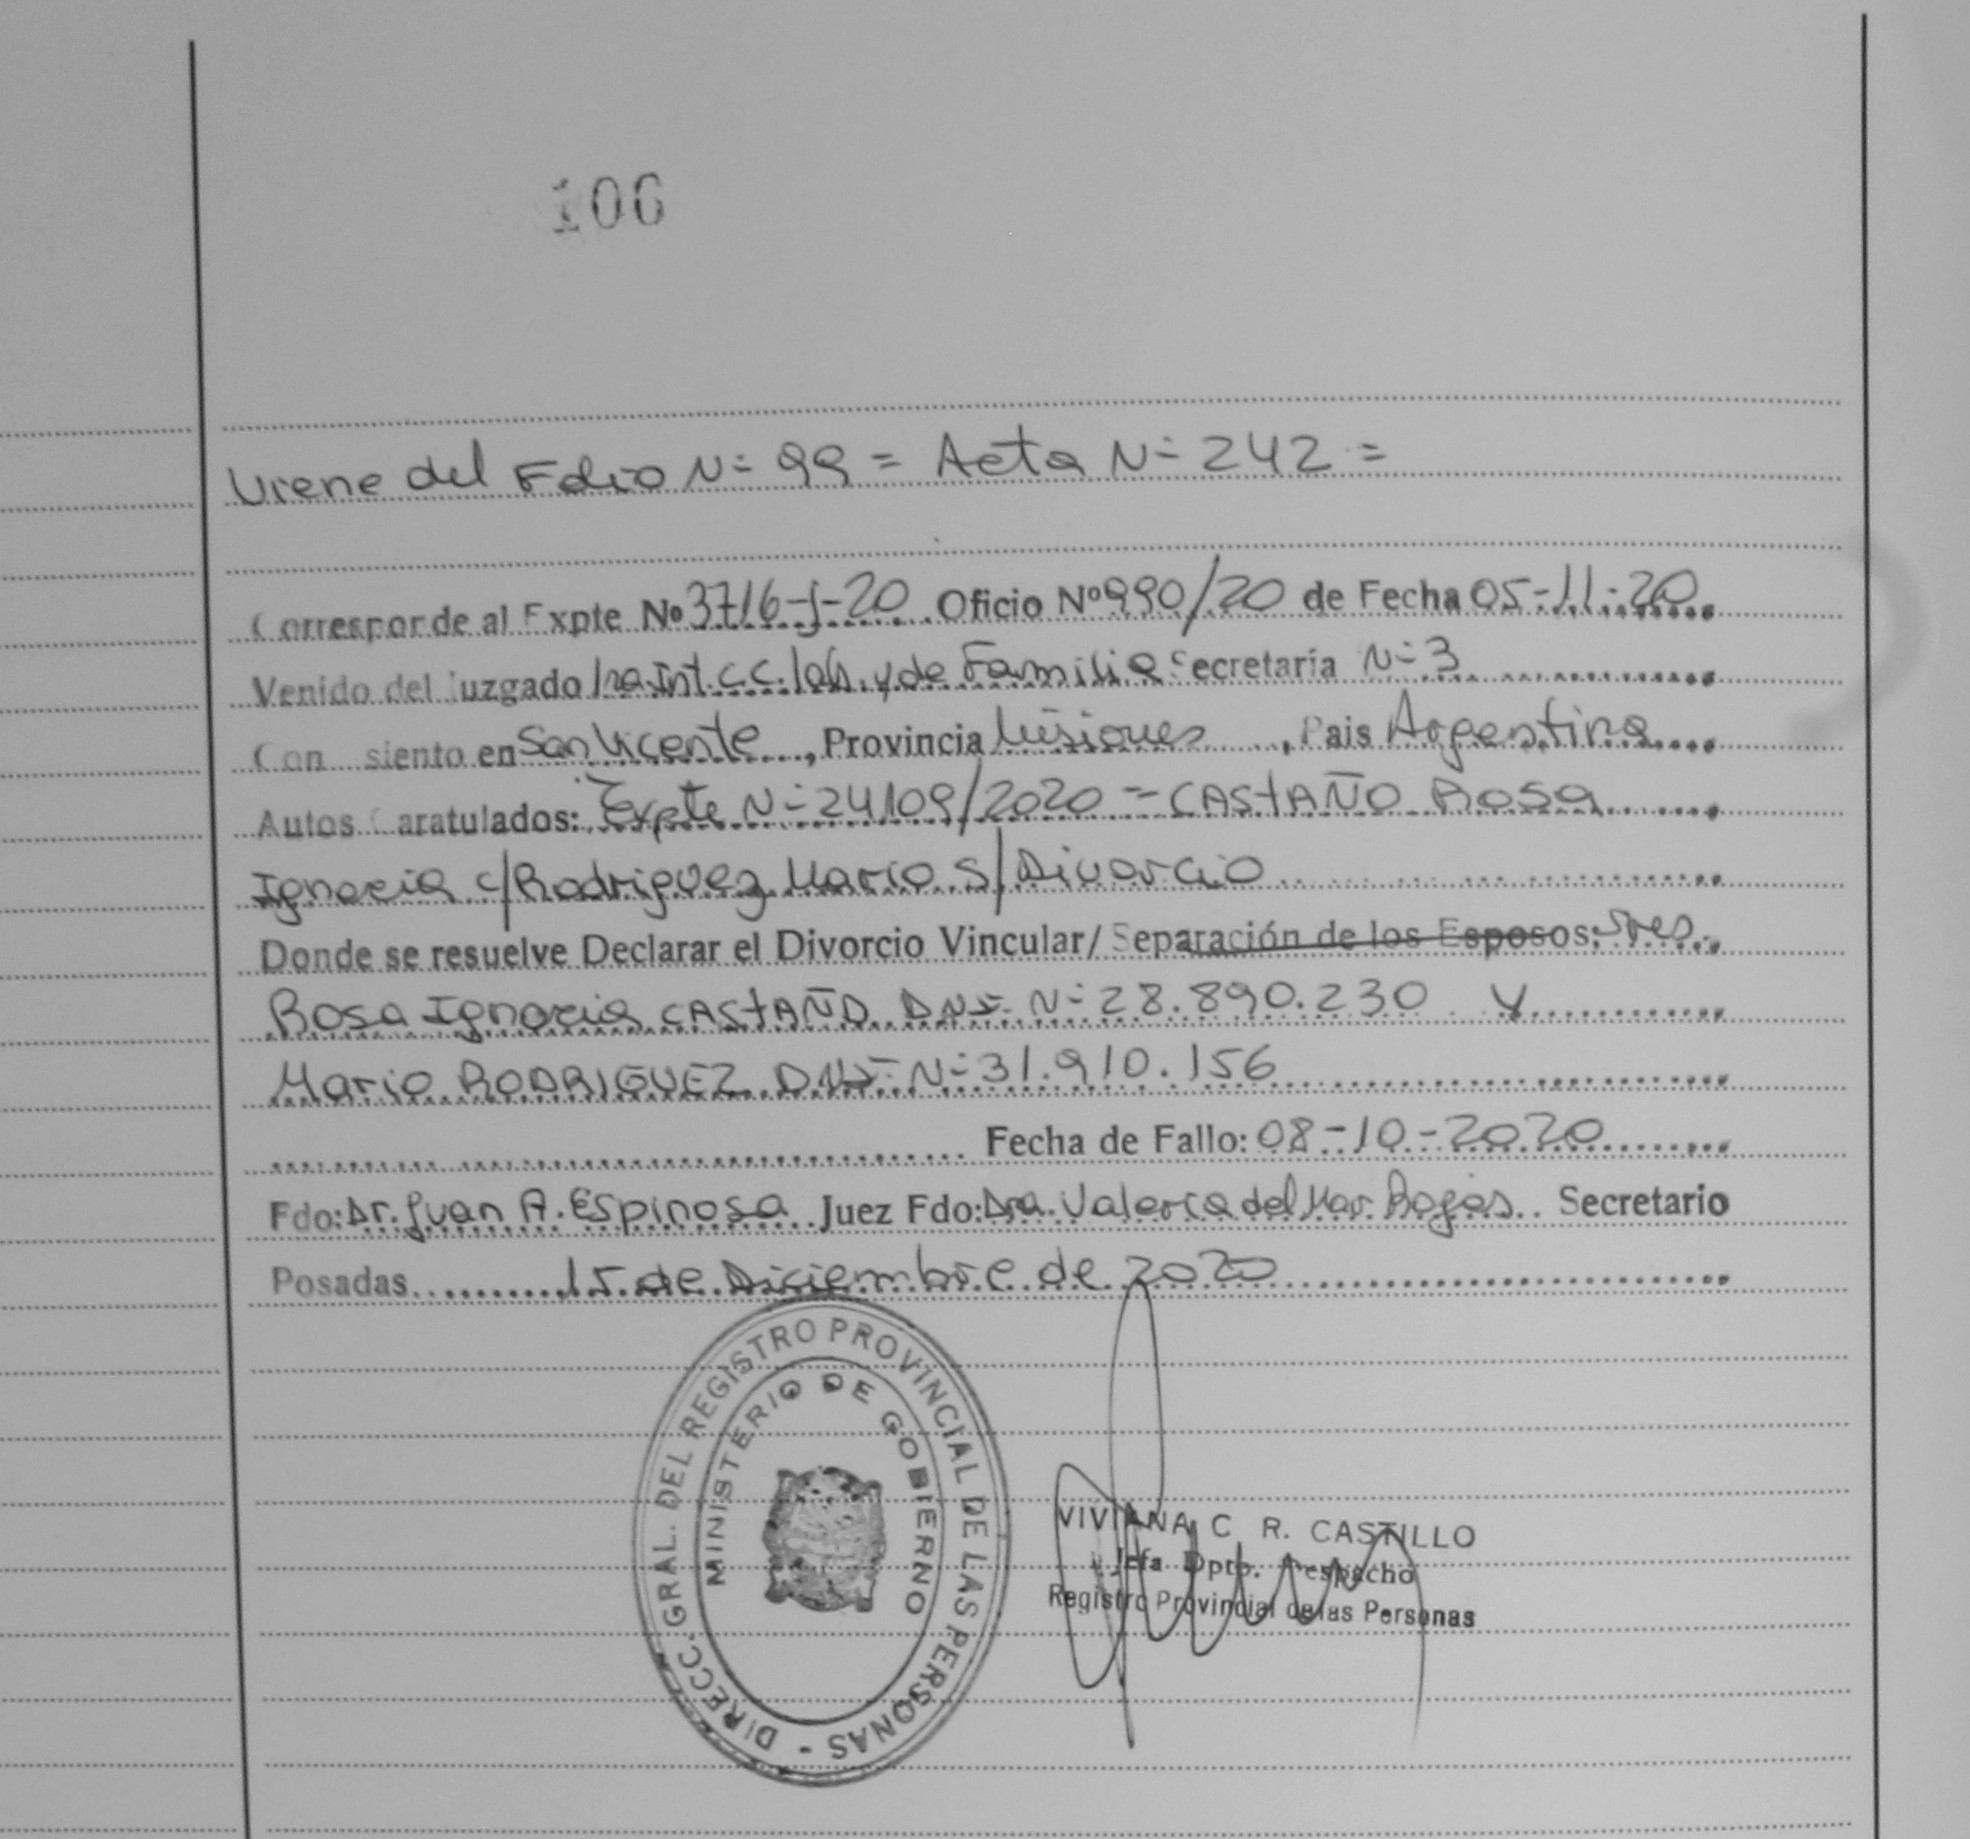 106
Viene del Folio N= 99 = Acta N= 242 =
Corresponde al Expte Nº 3716-J-20 Oficio Nº 990/20 de Fecha 05-11-20
Venido del Juzgado 1ra Int. C.C. lab. y de Familia Secretaría N= 3
Con asiento en San Vicente, Provincia Misiones, Pais Argentina
Autos Caratulados: Expte N= 24109/2020 = CASTAÑO Rosa
Ignacia c/Rodriguez Mario S/Divorcio
Donde se resuelve Declarar el Divorcio Vincular/ Separación de los Esposos: Sres.
Rosa Ignacia CASTAÑO DNI= N= 28.890.230 y
Mario RODRIGUEZ DNI= N= 31.910.156
Fecha de Fallo: 08-10-2020
Fdo: Dr. Juan A. Espinosa Juez Fdo: Dra. Valeria del Mar Rojas Secretario
Posadas 15 de Diciembre de 2020
DIRECC. GRAL. DEL REGISTRO PROVINCIAL DE LAS PERSONAS -
MINISTERIO DE GOBIERNO
VIVIANA C R. CASTILLO
Jefa Dpto. Despacho
Registro Provincial de las Personas